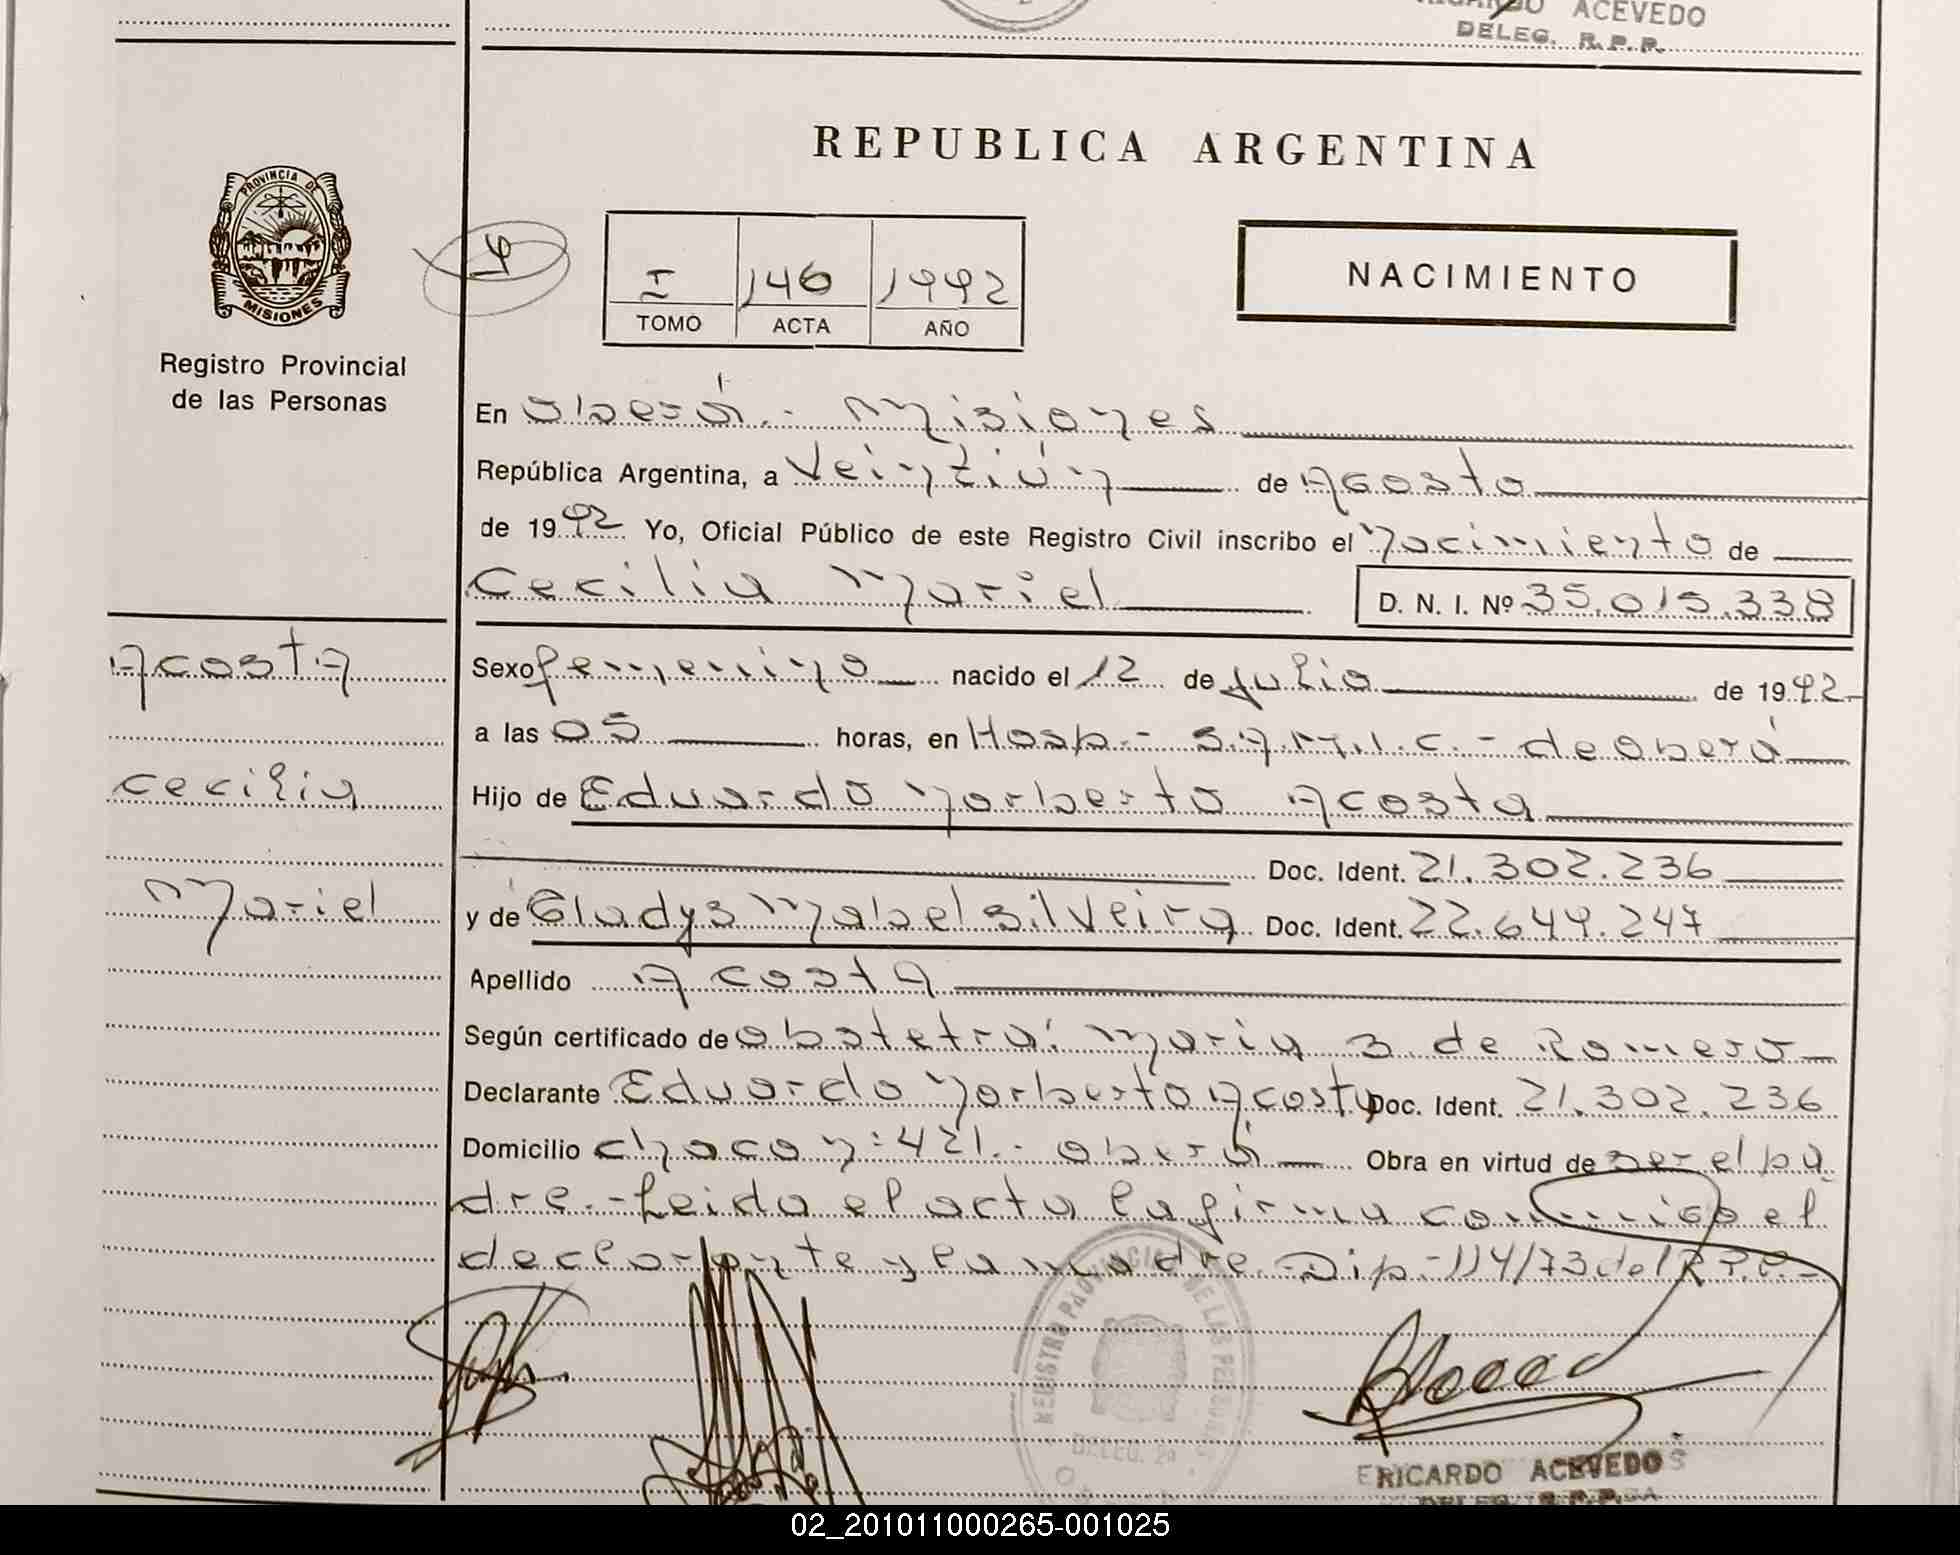 ACEVEDO
DELEG. R.P.R.
REPUBLICA ARGENTINA
PROVINCIA DE
MISIONES
Registro Provincial
de las Personas
I 146 1992
TOMO ACTA AÑO
NACIMIENTO
En Oberá.- Misiones
República Argentina, a Veintiún de Agosto
de 1992 Yo, Oficial Público de este Registro Civil inscribo el Nacimiento de
Cecilia Mariel D. N. I. Nº 35.015.338
Acosta
Cecilia
Mariel
Sexo femenino nacido el 12 de Julio de 1992
a las 05 horas, en Hosp.- S.A.M.I.C.- de Oberá
Hijo de Eduardo Norberto Acosta
Doc. Ident. 21.302.236
y de Gladys Mabel Silveira Doc. Ident. 22.649.247
Apellido Acosta
Según certificado de Obstetra: Maria S. de Romero
Declarante Eduardo Norberto Acosta Doc. Ident. 21.302.236
Domicilio Chacon: 421.- Oberá Obra en virtud de ser el pa
dre.- Leida el acta la firma conmigo el
declarante y la madre.- Dip.-114/73 del R.P.P.-
REGISTRO PROVINCIAL DE LAS PERSONAS
DELEG. 2ª
RICARDO ACEVEDO
02_201011000265-001025